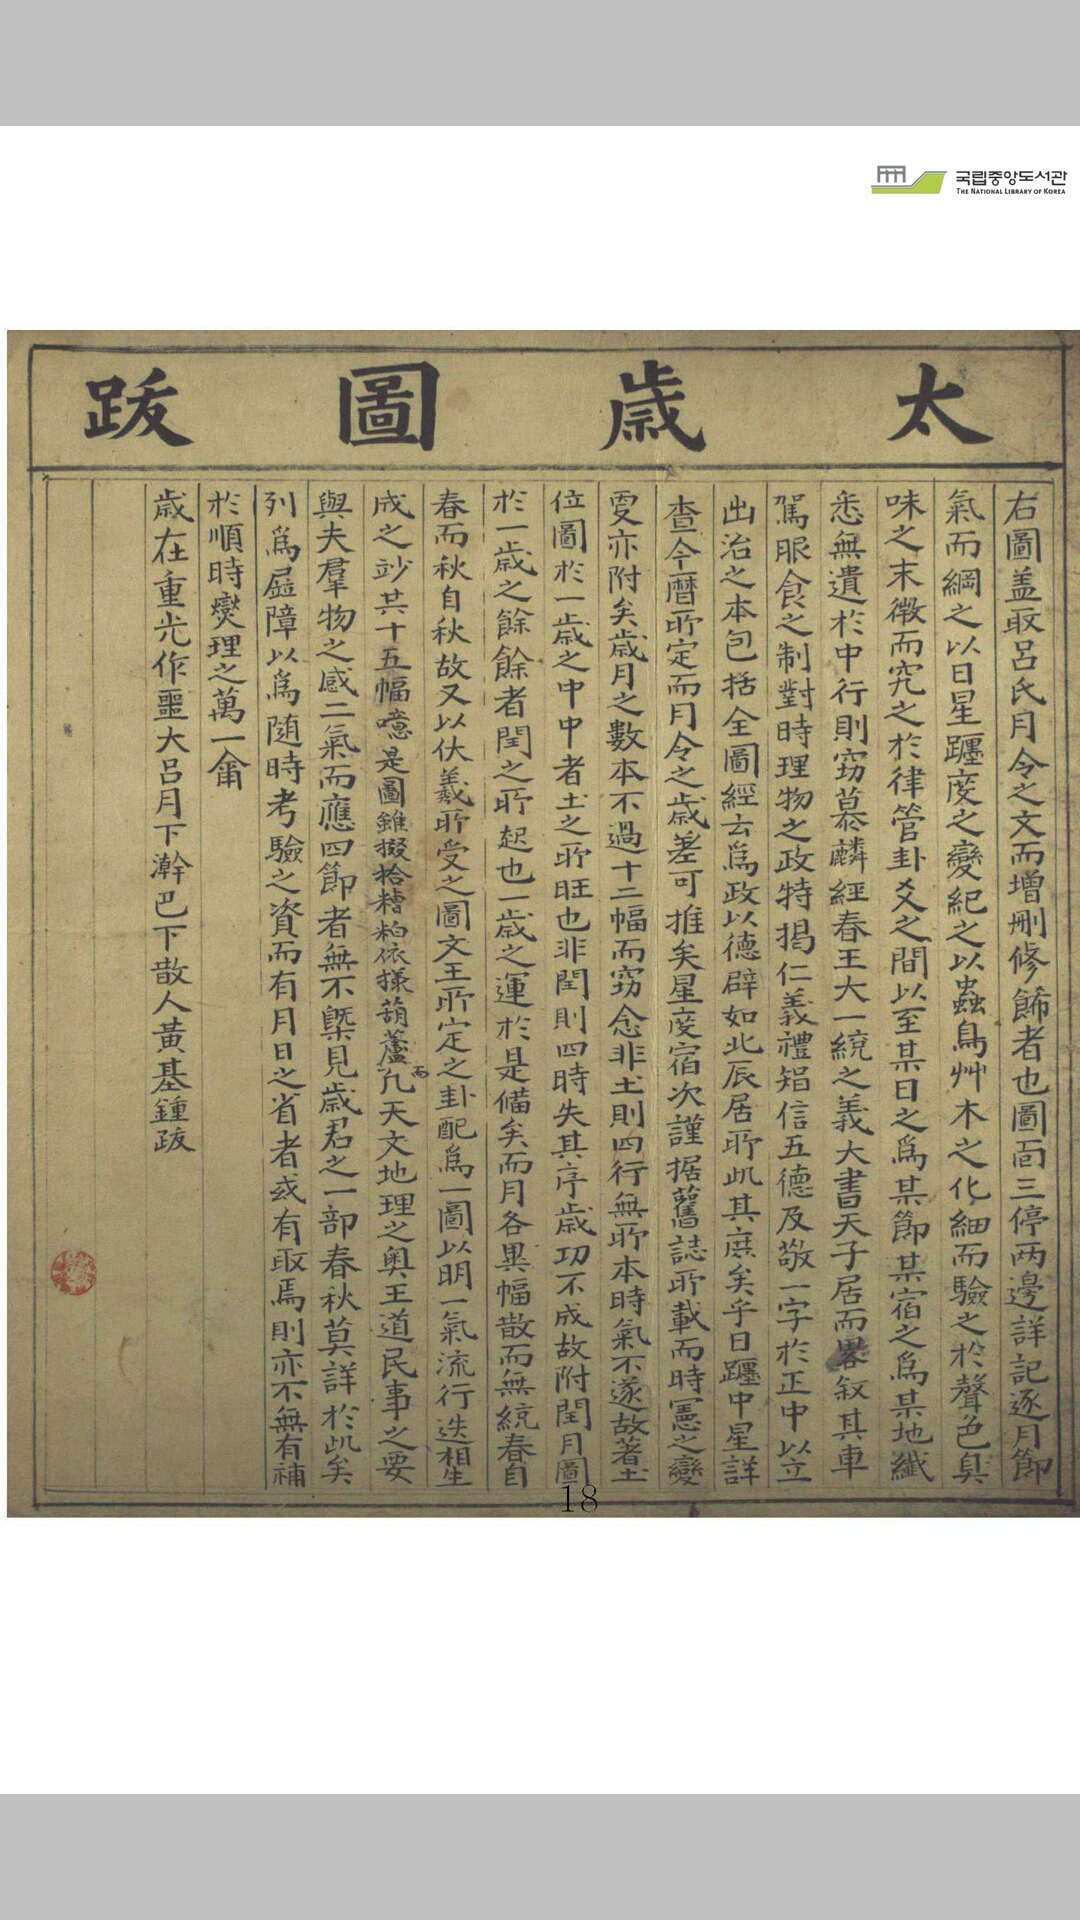 국립중앙도서관
THE NATIONAL LIBRARY OF KOREA
太歲圖跋
右圖盖取呂氏月令之文而增刪修餙者也圖面三停两邊詳記逐月節
氣而綱之以日星躔度之變紀之以蟲鳥艸木之化細而驗之於聲色臭
味之末微而究之於律管卦爻之間以至某日之爲某節某宿之爲某地纖
悉無遺於中行則窃慕麟經春王大一統之義大書天子居而畧叙其車
駕服食之制對時理物之政特揭仁義禮智信五德及敬一字於正中以立
出治之本包括全圖經云爲政以德辟如北辰居所此其庶矣乎日躔中星詳
查今曆所定而月令之歲差可推矣星度宿次謹据舊誌所載而時憲之變
更亦附矣歲月之數本不過十二幅而窃念非土則四行無所本時氣不遂故著土
位圖於一歲之中中者土之所旺也非閏則四時失其序歲功不成故附閏月圖
於一歲之餘餘者閏之所起也一歲之運於是備矣而月各異幅散而無統春自
春而秋自秋故又以伏羲所受之圖文王所定之卦配爲一圖以明一氣流行迭相生
成之玅共十五幅噫是圖雖掇拾糟粕依㨾葫蘆而凡天文地理之奥王道民事之要
與夫羣物之感二氣而應四節者無不槩見歲君之一部春秋莫詳於此矣
列爲屛障以爲随時考驗之資而有月日之省者或有取焉則亦不無有補
於順時燮理之萬一龠
歲在重光作噩大呂月下澣巴下散人黃基鍾跋
18